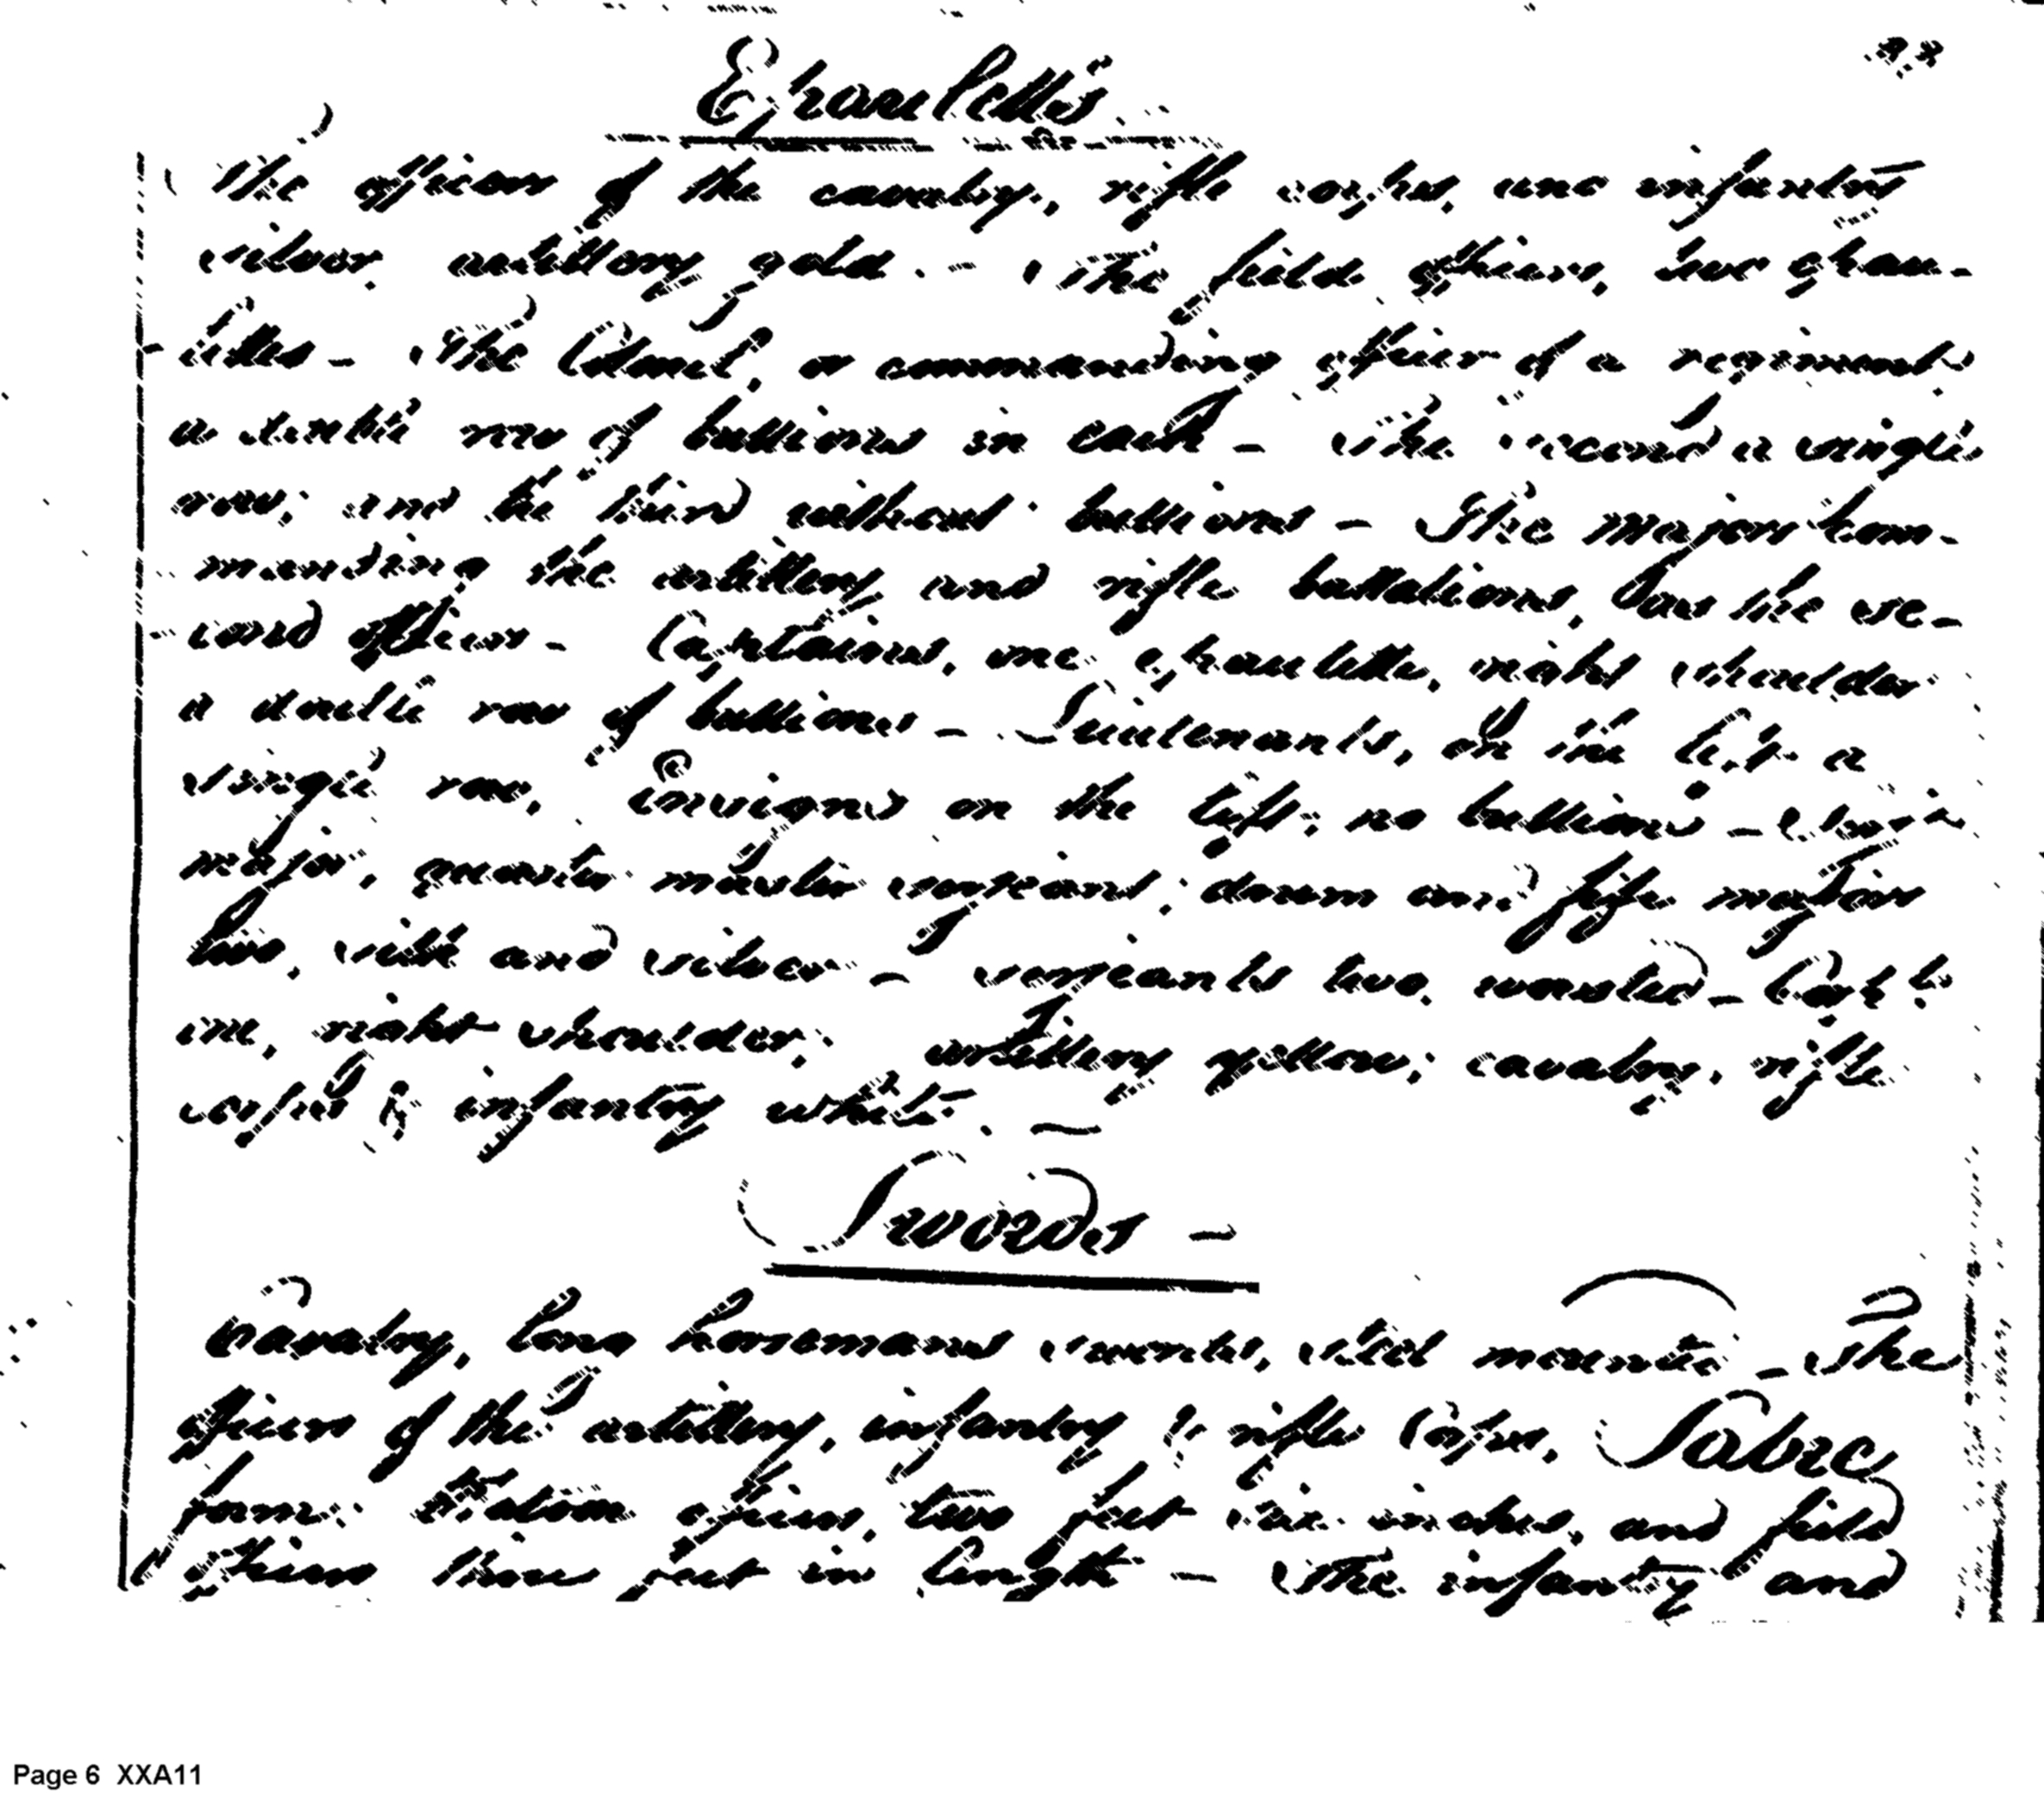 Epaulettes.
The officers of the cavalry, rifle corps, and infantry
silver, artillery gold. - The field officers, two epau-
lettes - The Colonel, or commanding officer of a regiment
a double row of bullions in each - The second a single
row; and the third without bullions - The major com-
manding the artillery and rifle battalions, as the se-
cond officer - Captains, one epaulette, right shoulder
a double row of bullions - Lieutenants, on the left a
single row. Ensigns on the left; no bullions -
major, quarter master sergeant; drum and fife major
two, silk and silver - sergeants two, worsted - Corpls
one, right shoulder; artillery yellow; cavalry, rifle
corps & infantry white. -
Swords -
Cavalry, long horsemans swords, steel mounted - The
officers of the artillery, infantry & rifle Corps, Sabre
form: officers, two feet six inches, and field
officers three feet in length - The infantry and
Page 6 XXA11